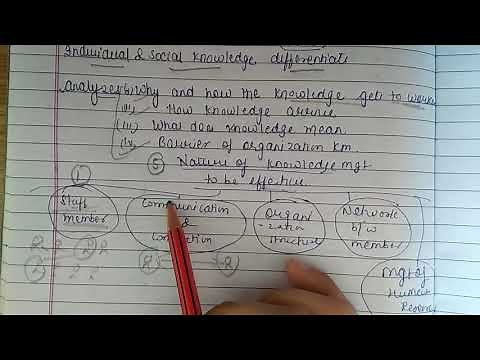 Individual & social knowledge differentials
Analyzes why and how the knowledge gets to works
(ii) How knowledge arrive.
(iii) What does knowledge mean.
(iv) Barrier of organization km.
⑤ Nature of knowledge mgt
to be effective.
①
Staff
member
Communication
&
Organi
-zation
structure
Network
b/w
member
Mgt of
Human